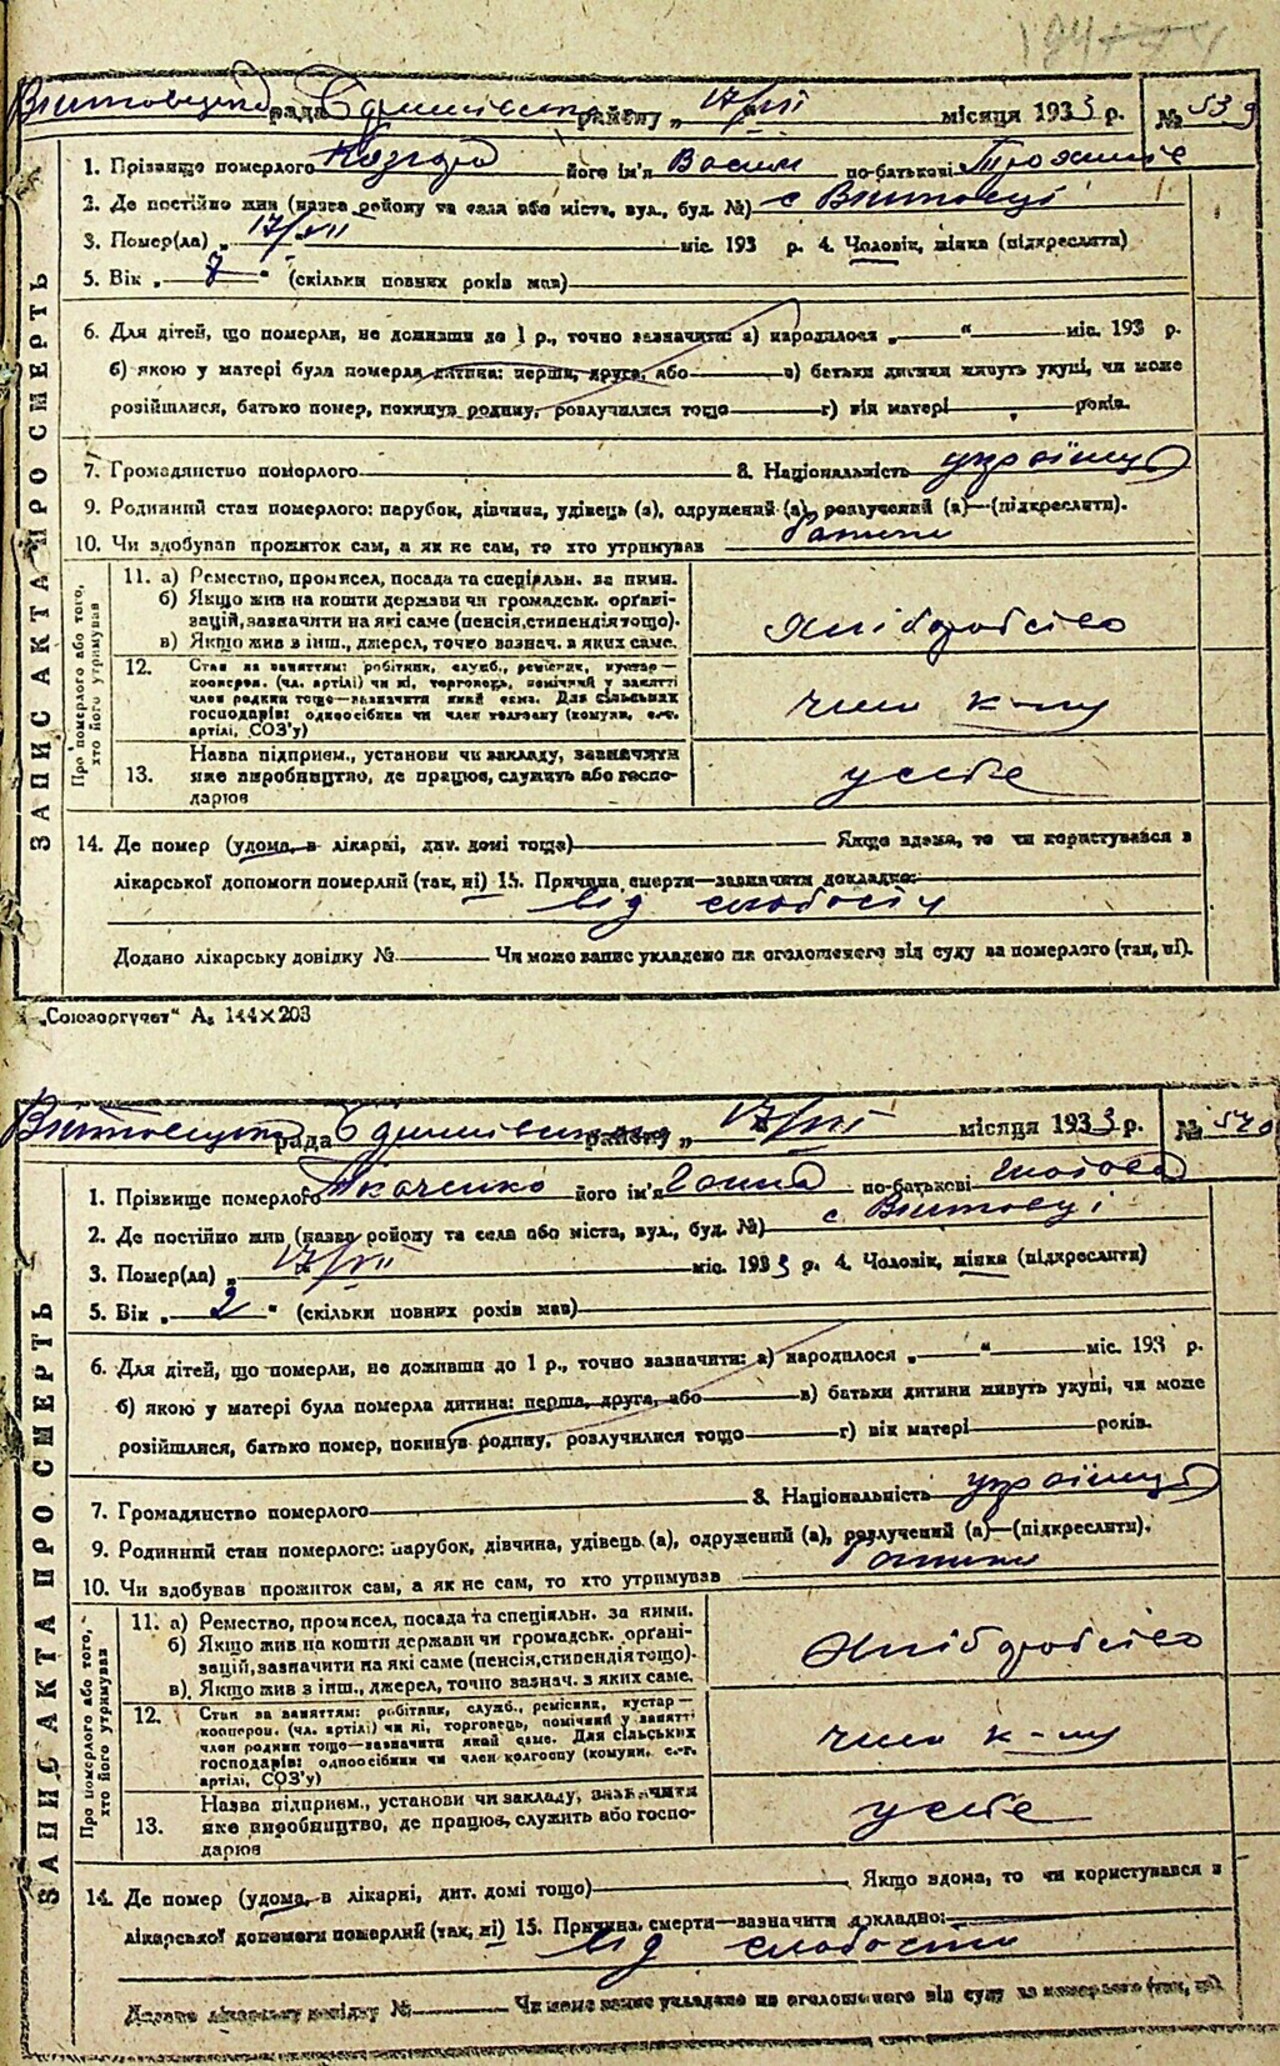 рада району „ 17/VII місяця 1933 р. № 539
1. Прізвище померлого його ім'я Василь по-батькові
2. Де постійно жив (назва району та села або міста, вул., буд. №) с
3. Помер(ла) „ 17/VII міс. 193 р. 4. Чоловік, жінка (підкреслити)
5. Вік „ “ (скільки повних років мав)
6. Для дітей, що померли, не доживши до 1 р., точно зазначити: а) народилося „ “ міс. 193 р.
б) якою у матері була померла дитина: перша, друга, або в) батьки дитини живуть укупі, чи може
розійшлися, батько помер, покинув родину, розлучилися тощо г) вік матері років.
7. Громадянство померлого 8. Національність українц
9. Родинний стан померлого: парубок, дівчина, удівець (а), одружений (а), розлучений (а)—(підкреслити).
10. Чи здобував прожиток сам, а як не сам, то хто утримував батьки
ЗАПИС АКТА ПРО СМЕРТЬ
Про померлого або того, хто його утримував
11. а) Ремество, промисел, посада та спеціяльн. за ними.
б) Якщо жив на кошти держави чи громадськ. орґані-
зацій, зазначити на які саме (пенсія, стипендія тощо).
в) Якщо жив в інш., джерел, точно вазнач. в яких саме.
Хліборобство
12. Стан за заняттям: робітник, служб., ремісник, кустар—
кооперов. (чл. артілі) чи ні, торговець, помічний у занятті
член родини тощо—зазначити який саме. Для сільських
господарів: одноосібник чи член колгоспу (комуни, с.-г.
артілі, СОЗ'у)
член к-пу
13. Назва підприєм., установи чи закладу, зазначити
яке виробництво, де працює, служить або госпо-
дарює
у себе
14. Де помер (удома, в лікарні, дит. домі тощо) Якщо вдома, то чи користувався в
лікарської допомоги померлий (так, ні) 15. Причина смерти—зазначити докладно:
від слабости
Додано лікарську довідку № Чи може запис укладено на оголошеного від суду за померлого (так, ні).
„Союзоргучет“ А5 144×203
рада району „ 17/VII місяця 1933 р. № 540
1. Прізвище померлого Ткаченко його ім'я Ганна по-батькові
2. Де постійно жив (назва району та села або міста, вул., буд. №) с.
3. Помер(ла) „ 17/VII міс. 1933 р. 4. Чоловік, жінка (підкреслити)
5. Вік „ 2 “ (скільки повних років мав)
6. Для дітей, що померли, не доживши до 1 р., точно зазначити: а) народилося „ “ міс. 193 р.
б) якою у матері була померла дитина: перша, друга, або в) батьки дитини живуть укупі, чи може
розійшлися, батько помер, покинув родину, розлучилися тощо г) вік матері років.
7. Громадянство померлого 8. Національність українц
9. Родинний стан померлого: парубок, дівчина, удівець (а), одружений (а), розлучений (а)—(підкреслити).
10. Чи здобував прожиток сам, а як не сам, то хто утримував батьки
ЗАПИС АКТА ПРО СМЕРТЬ
Про померлого або того, хто його утримував
11. а) Ремество, промисел, посада та спеціяльн. за ними.
б) Якщо жив на кошти держави чи громадськ. орґані-
зацій, зазначити на які саме (пенсія, стипендія тощо).
в) Якщо жив з інш., джерел, точно вазнач. з яких саме.
Хліборобство
12. Стан за заняттям: робітник, служб., ремісник, кустар—
кооперов. (чл. артілі) чи ні, торговець, помічний у занятті
член родини тощо—зазначити який саме. Для сільських
господарів: одноосібник чи член колгоспу (комуни, с.-г.
артілі, СОЗ'у)
член к-пу
13. Назва підприєм., установи чи закладу, зазначити
яке виробництво, де працює, служить або госпо-
дарює
у себе
14. Де помер (удома, в лікарні, дит. домі тощо) Якщо вдома, то чи користувався в
лікарської допомоги померлий (так, ні) 15. Причина смерти—зазначити докладно:
від слабости
Додано лікарську довідку № Чи може запис укладено на оголошеного від суду за померлого (так, ні)